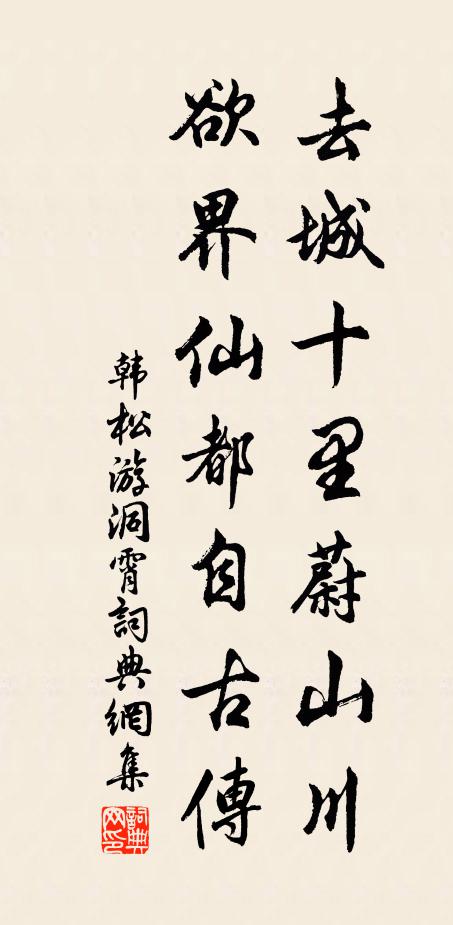 去城十里蔚山川
欲界仙都自古傳
韩松游洞霄詞典網集
詞典网印